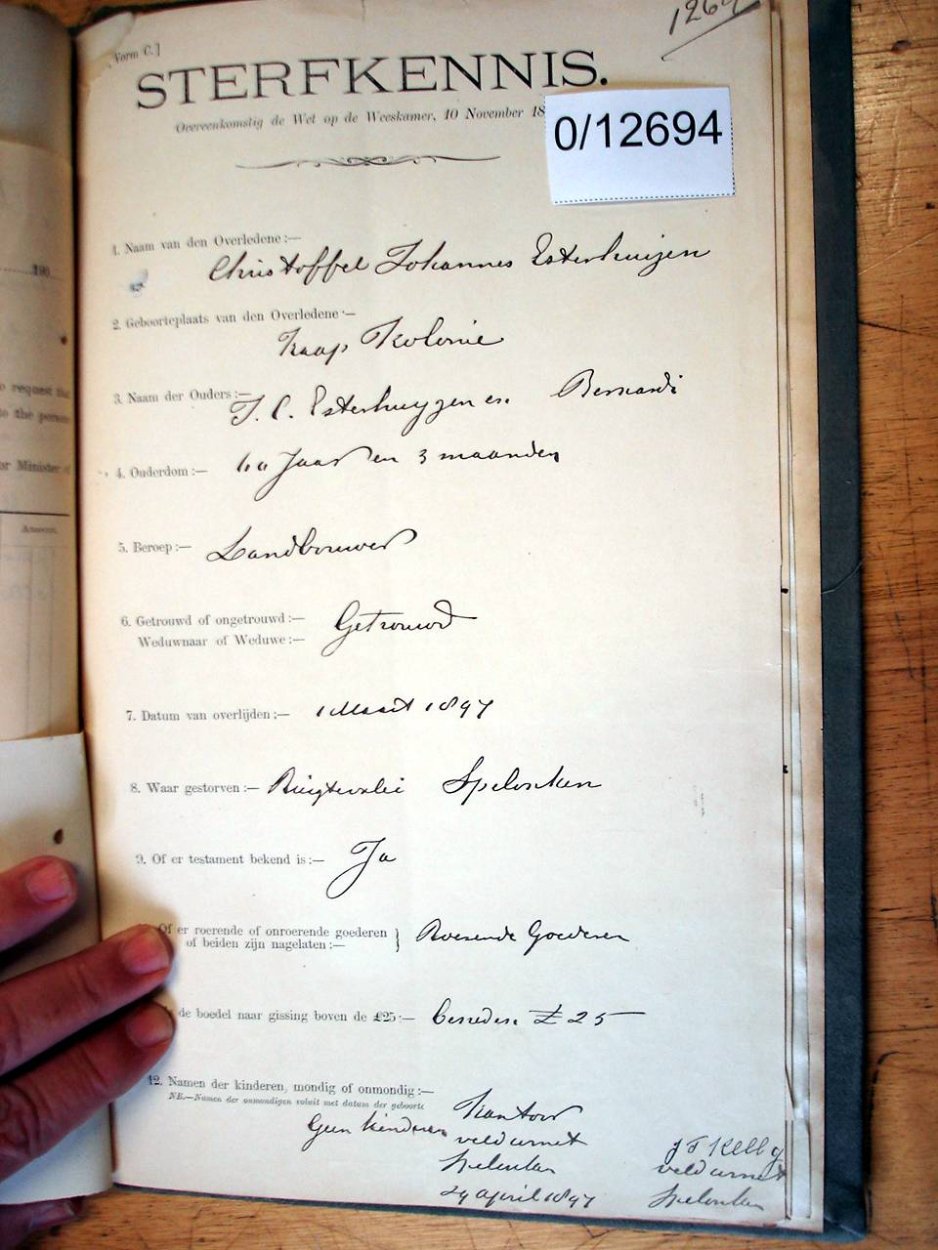 Vorm C.]
STERFKENNIS.
Overeenkomstig de Wet op de Weeskamer, 10 November 18
0/12694
1. Naam van den Overledene:—
Christoffel Johannes Esterhuijzen
2. Geboorteplaats van den Overledene:—
Kaap Kolonie
3. Naam der Ouders:—
J. C. Esterhuyzen en Bernardi
4. Ouderdom:— Jaar en 3 maanden
5. Beroep:— Landbouwer
6. Getrouwd of ongetrouwd:— Getrouwd
Weduwnaar of Weduwe:—
7. Datum van overlijden:— 1 Maart 1897
8. Waar gestorven:— Spelonken
9. Of er testament bekend is:— Ja
Of er roerende of onroerende goederen
of beiden zijn nagelaten:— Roerende Goederen
de boedel naar gissing boven de £25:— beneden £25
12. Namen der kinderen, mondig of onmondig:—
NB.—Namen der onmondigen voluit met datum der geboorte
Geen kinderen
Kantoor
veldcornet
Spelonken
29 april 1897
J F Kelly
veldcornet
Spelonken
190
o request the
to the person
or Minister of
Amount.